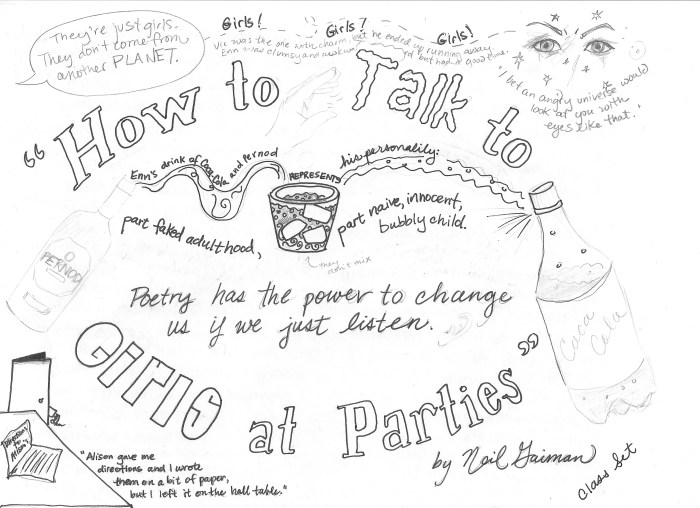 They're just girls.
They don't come from
another PLANET.
Girls!
Girls?
Girls!
Vic was the one with charm, but he ended up running away.
Enn was clumsy and awkward but had a good time.
"I bet an angry universe would
look at you with
eyes like that."
"How to Talk to
Enn's drink of Coca Cola and Pernod
REPRESENTS
his personality:
part faked adulthood,
part naive, innocent,
bubbly child.
they don't mix
PERNOD
Coca
Cola
Poetry has the power to change
us if we just listen.
Girls at Parties"
by Neil Gaiman
Directions
to
Alison's
"Alison gave me
directions and I wrote
them on a bit of paper,
but I left it on the hall table."
Class Set